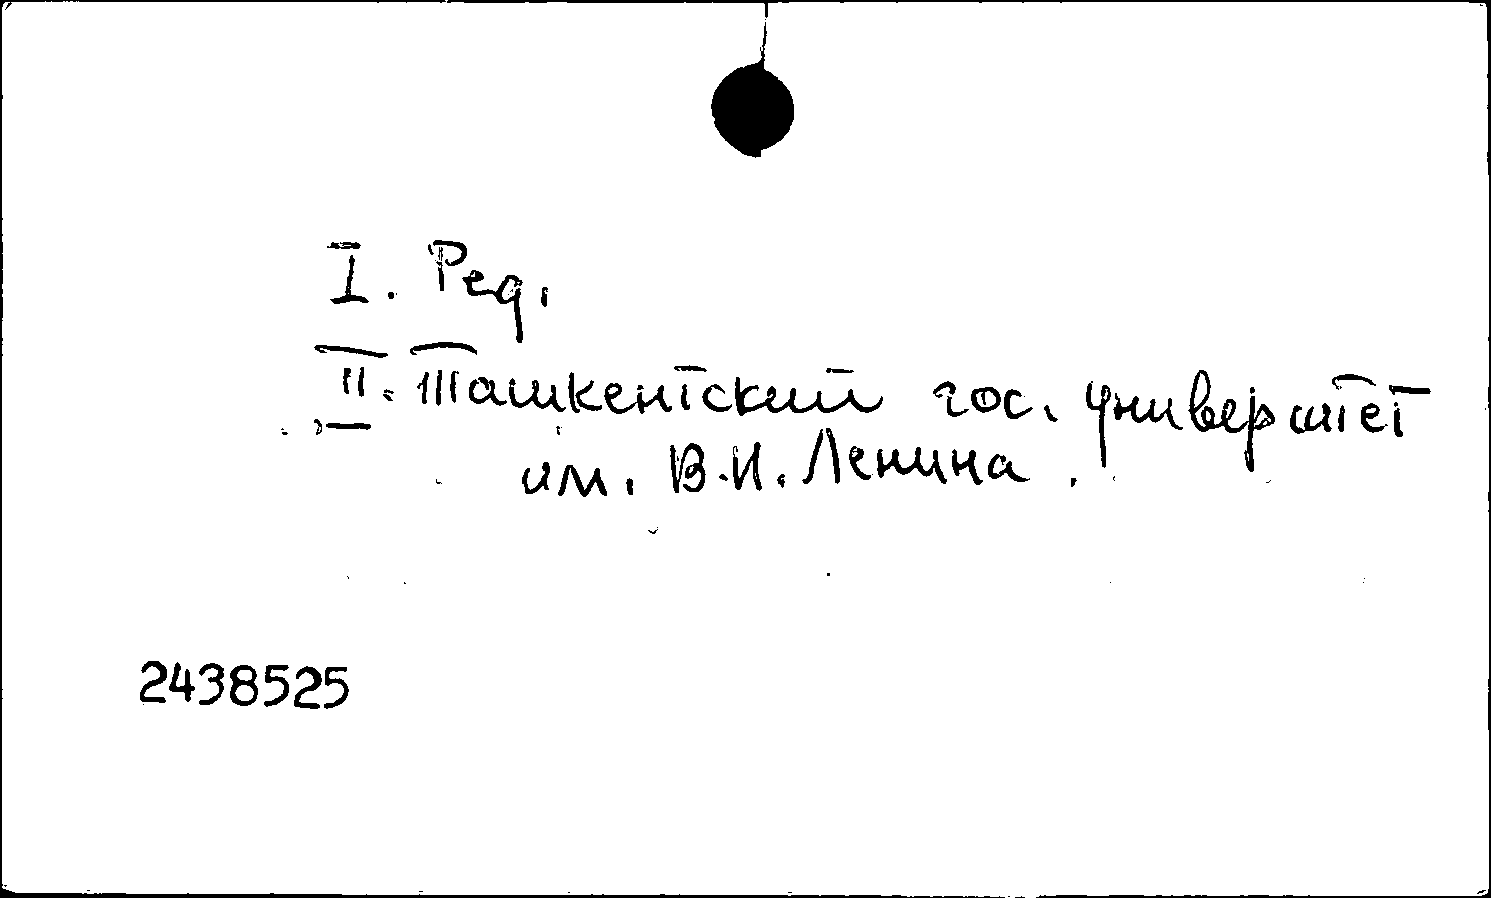 I. Ред.
II. Ташкентский гос. университет
им. В.И. Ленина.
2438525